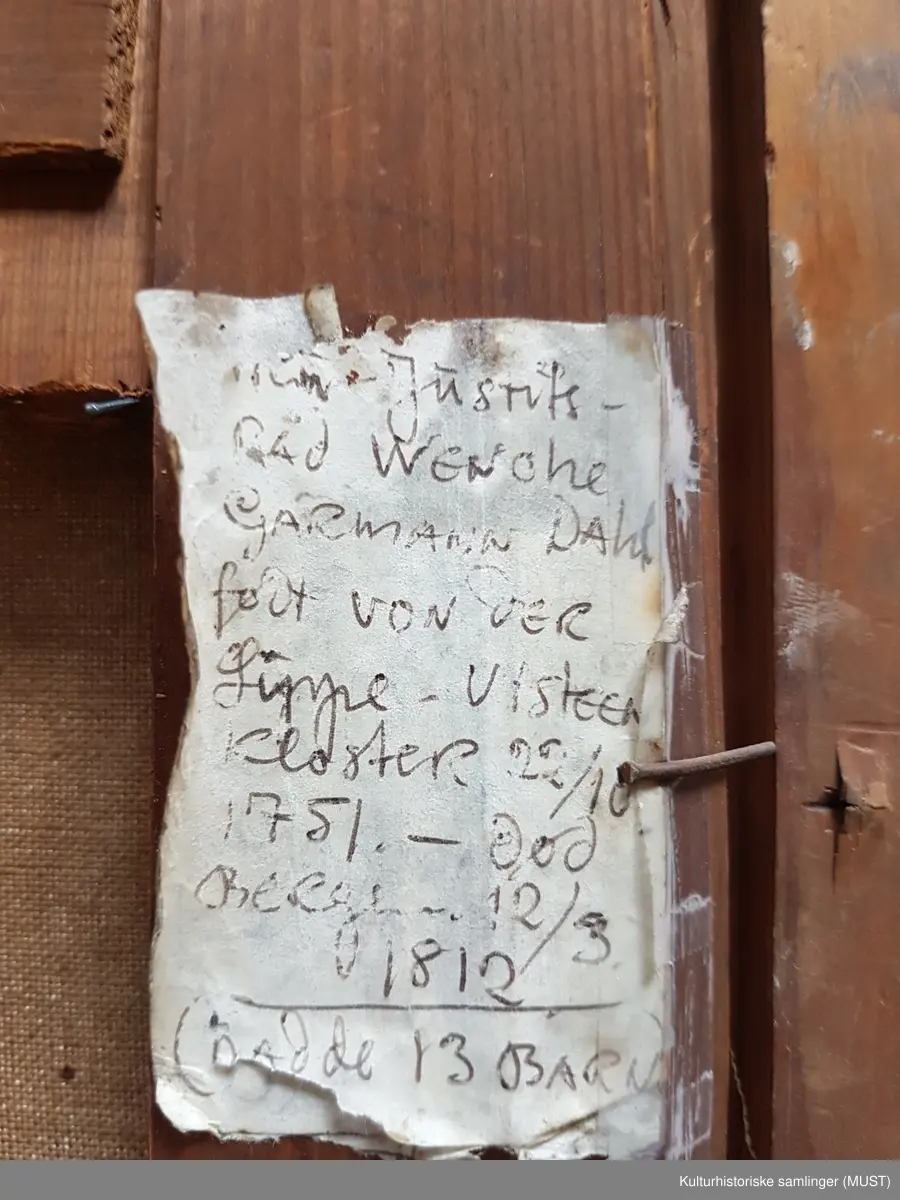 - Justits -
Råd Wenche
Garmann Dahl
født von der
Lippe - Utsteen
Kloster 22/10
1751. — Død
Bergen. 12/3
1812
(Hadde 13 Barn)
Kulturhistoriske samlinger (MUST)